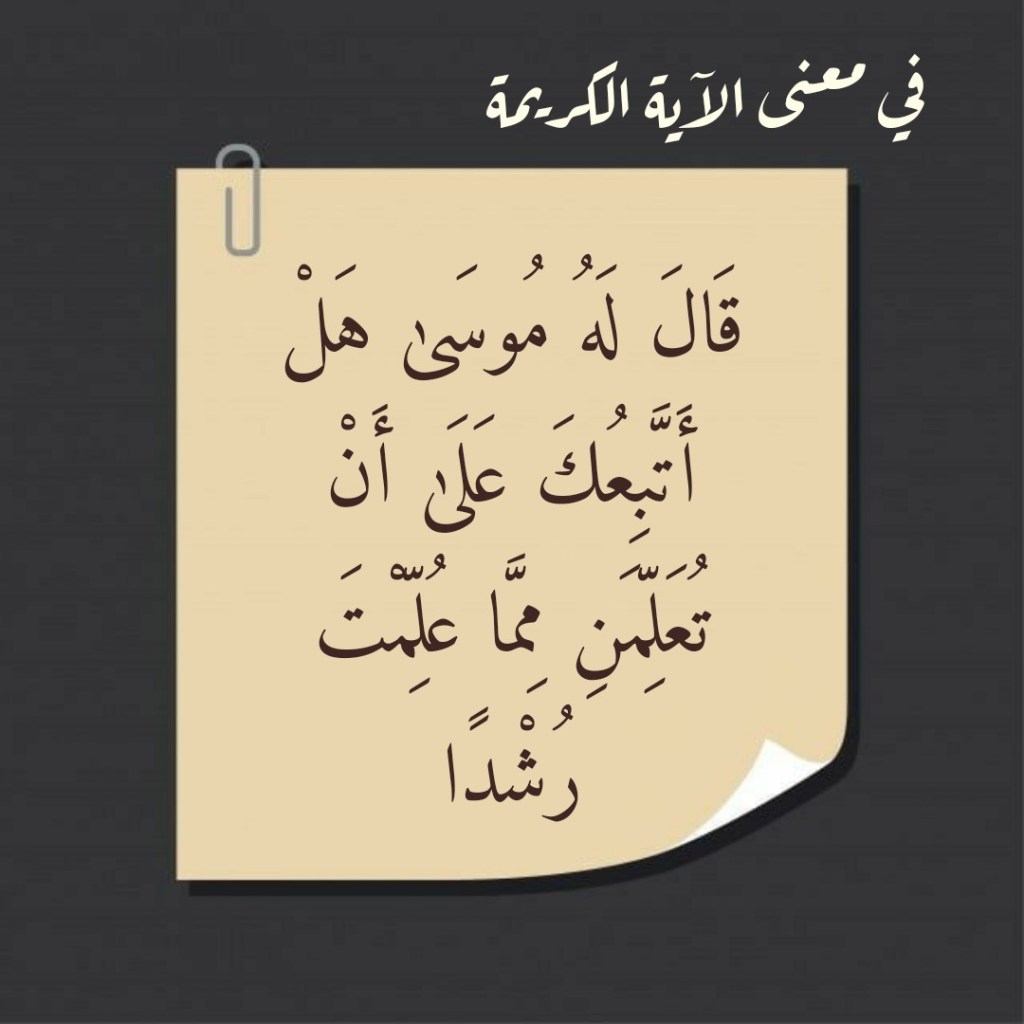 في معنى الآية الكريمة
قَالَ لَهُ مُوسَىٰ هَلْ
أَتَّبِعُكَ عَلَىٰ أَنْ
تُعَلِّمَنِ مِمَّا عُلِّمْتَ
رُشْدًا